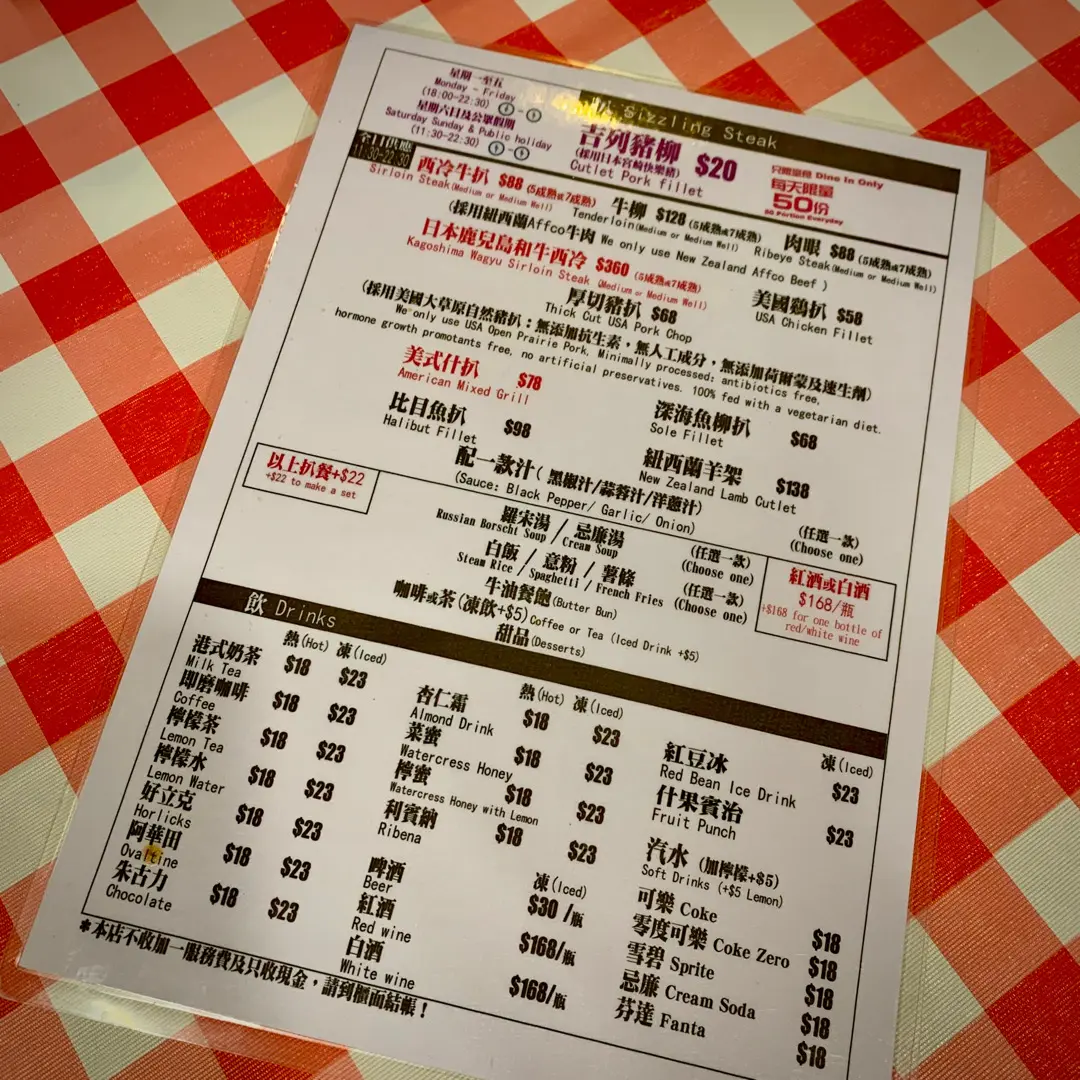 星期一至五
Monday - Friday
(18:00-22:30)
星期六日及公眾假期
Saturday Sunday & Public holiday
(11:30-22:30)
Sizzling Steak
吉列豬柳 $20
(採用日本宮崎快樂豬)
Cutlet Pork fillet
只限堂食 Dine In Only
每天限量
50份
50 Portion Everyday
全日供應
11:30-22:30
西冷牛扒 $88 (5成熟或7成熟)
Sirloin Steak(Medium or Medium Well)
牛柳 $128 (5成熟或7成熟)
Tenderloin(Medium or Medium Well)
肉眼 $88 (5成熟或7成熟)
Ribeye Steak(Medium or Medium Well)
(採用紐西蘭Affco牛肉 We only use New Zealand Affco Beef )
日本鹿兒島和牛西冷 $360 (5成熟或7成熟)
Kagoshima Wagyu Sirloin Steak (Medium or Medium Well)
厚切豬扒 $68
Thick Cut USA Pork Chop
美國鷄扒 $58
USA Chicken Fillet
(採用美國大草原自然豬扒：無添加抗生素，無人工成分，無添加荷爾蒙及速生劑)
We only use USA Open Prairie Pork, Minimally processed: antibiotics free,
hormone growth promotants free, no artificial preservatives. 100% fed with a vegetarian diet.
美式什扒 $78
American Mixed Grill
比目魚扒 $98
Halibut Fillet
深海魚柳扒 $68
Sole Fillet
紐西蘭羊架 $138
New Zealand Lamb Cutlet
配一款汁( 黑椒汁/蒜蓉汁/洋蔥汁) (任選一款)
(Sauce: Black Pepper/ Garlic/ Onion) (Choose one)
以上扒餐+$22
+$22 to make a set
羅宋湯 / 忌廉湯 (任選一款)
Russian Borscht Soup / Cream Soup (Choose one)
白飯 / 意粉 / 薯條 (任選一款)
Steam Rice / Spaghetti / French Fries (Choose one)
牛油餐飽(Butter Bun)
咖啡或茶(凍飲+$5)Coffee or Tea (Iced Drink +$5)
甜品(Desserts)
紅酒或白酒
$168/瓶
+$168 for one bottle of
red/white wine
飲 Drinks
熱(Hot) 凍(Iced)
港式奶茶 $18 $23
Milk Tea
即磨咖啡 $18 $23
Coffee
檸檬茶 $18 $23
Lemon Tea
檸檬水 $18 $23
Lemon Water
好立克 $18 $23
Horlicks
阿華田 $18 $23
Ovaltine
朱古力 $18 $23
Chocolate
熱(Hot) 凍(Iced)
杏仁霜 $18 $23
Almond Drink
菜蜜 $18 $23
Watercress Honey
檸蜜 $18 $23
Watercress Honey with Lemon
利賓納 $18 $23
Ribena
凍(Iced)
啤酒 $30 /瓶
Beer
紅酒 $168/瓶
Red wine
白酒 $168/瓶
White wine
凍(Iced)
紅豆冰 $23
Red Bean Ice Drink
什果賓治 $23
Fruit Punch
汽水 (加檸檬+$5)
Soft Drinks (+$5 Lemon)
可樂 Coke $18
零度可樂 Coke Zero $18
雪碧 Sprite $18
忌廉 Cream Soda $18
芬達 Fanta $18
*本店不收加一服務費及只收現金，請到櫃面結帳！